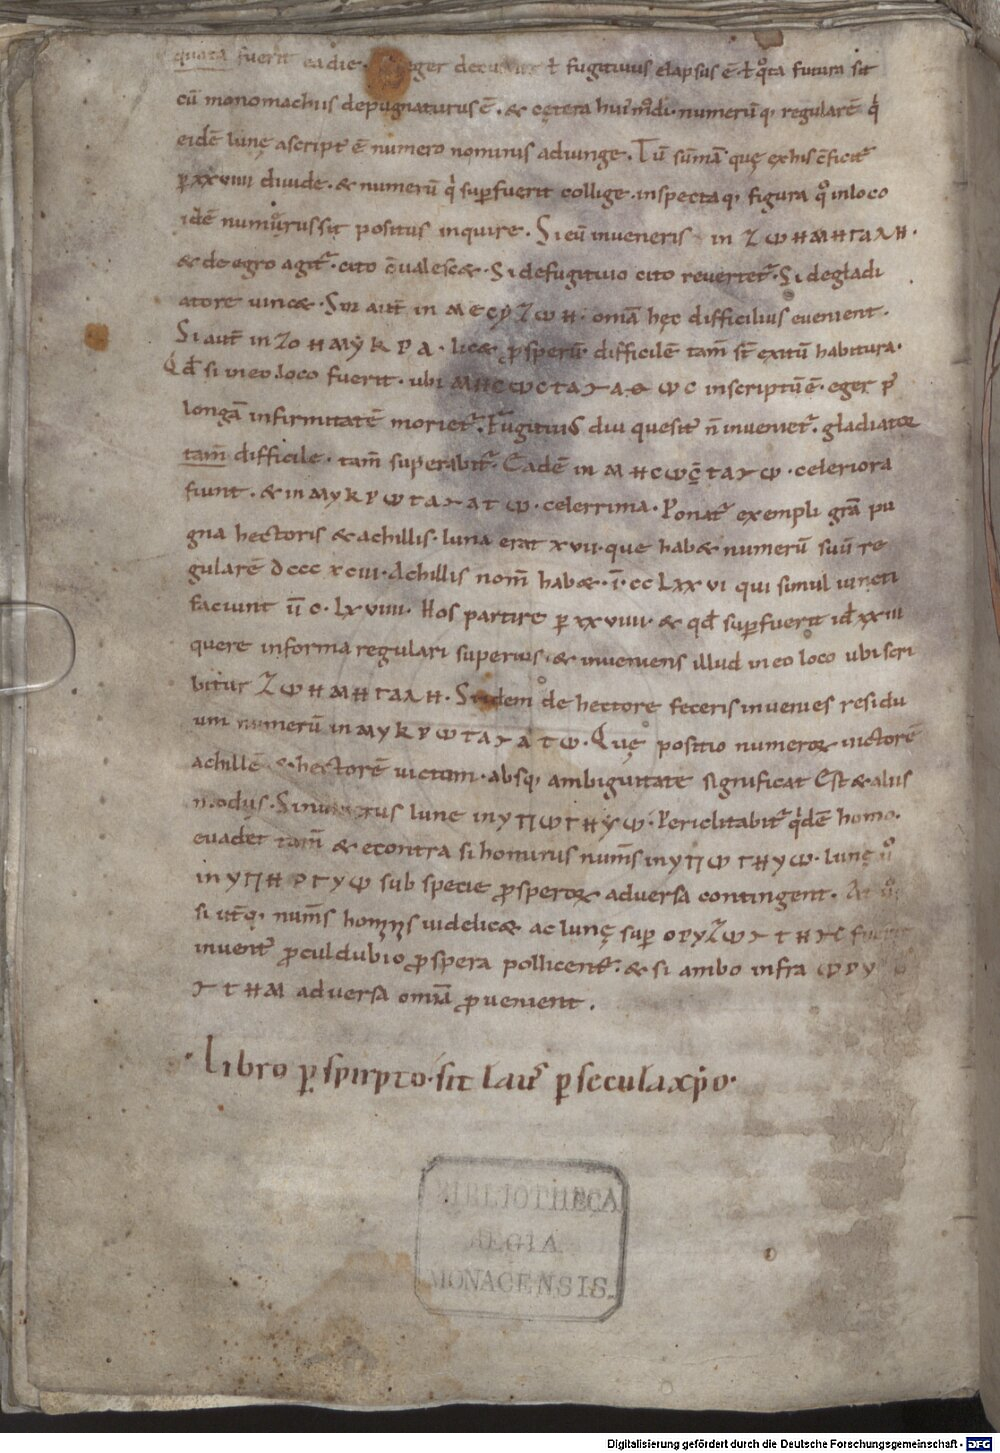 quata fuerit ea die eger decubuit ł fugitiuus elapsus ē· ł qͦta futura sit
cū monomachus depugnaturus ē· & cętera huiꝰmodi· numerūq; regularē q̇
eidē lunę ascript᷑ ē numero nominis adiunge· Tū sūmā quę ex his c̄ficit᷑
ꝑ xxviiii diuide· & numerū q̇ suꝑfuerit collige· inspectaq; figura qͦ in loco
idē numꝰrus sit positus inquire· Si eū inueneris in Ζ ω Η Μ Η Γ α λ Η·
& de egro agit᷑· cito c̄ualesc&· Si de fugitiuo cito reuertet᷑· Si de gladi
atore uinc&· Sin aut̄ in Μ ε C y Ζ ω Η· om̄a hęc difficilius euenient·
Si aut̄ in Ζ ο Η Μ y Κ Ρ Α· lic& ꝓsperū· difficilē tam̄ st̄ exitū habitura·
Qd̄ si in eo loco fuerit· ubi inscriptū ē· eger p̄
longā infirmitatē moriet᷑· Fugitiuꝰ diu quesit᷑ n̄ inueniet᷑· gladiator
tam̄ difficile· tam̄ superabit᷑· Eadē in celeriora
fiunt· & in celerrima· Ponat᷑ exempli grā pu
gna hectoris & achillis· luna erat xvii· que hab& numerū suū re
gularē dccc xciii· Achillis nom̄ hab&· ī· cc Lxx vi qui simul iuncti
faciunt īī c· Lxviiii· Hos partire ꝑ xxviiii· & qd̄ suꝑfuerit id xxiii
quere in forma regulari superius· & inueniens illud in eo loco ubi scri
bitur Ζ ω Η Μ Η Γ α λ Η· Si idem de hectore feceris inuenies residu
um numerū in Quę positio numeroꝝ uictorē
achillē & hectorē uictum· absq; ambiguitate significat Est & alius
modus· Si numerus lune in y Π ω Γ Η y ω· Periclitabit᷑ q̇dē homo·
euadet tam̄ & econtra si hominis num̄s in y Π ω Γ Η y ω· lunę ů
in y Π Η ο Γ y ω sub specie ꝓsperoꝝ aduersa contingent· At ů
si ut̄q; num̄s hominis uidelic& ac lunę suꝑ fuerit
inuent᷑ ꝓculdubio ꝓspera pollicent᷑· & si ambo infra
aduersa om̄ia ꝓuenient·
Libro ꝑ sc̄pto· sit laus ꝑ secula xp̄o·
BIBLIOTHECA
REGIA
MONACENSIS.
Digitalisierung gefördert durch die Deutsche Forschungsgemeinschaft - DFG